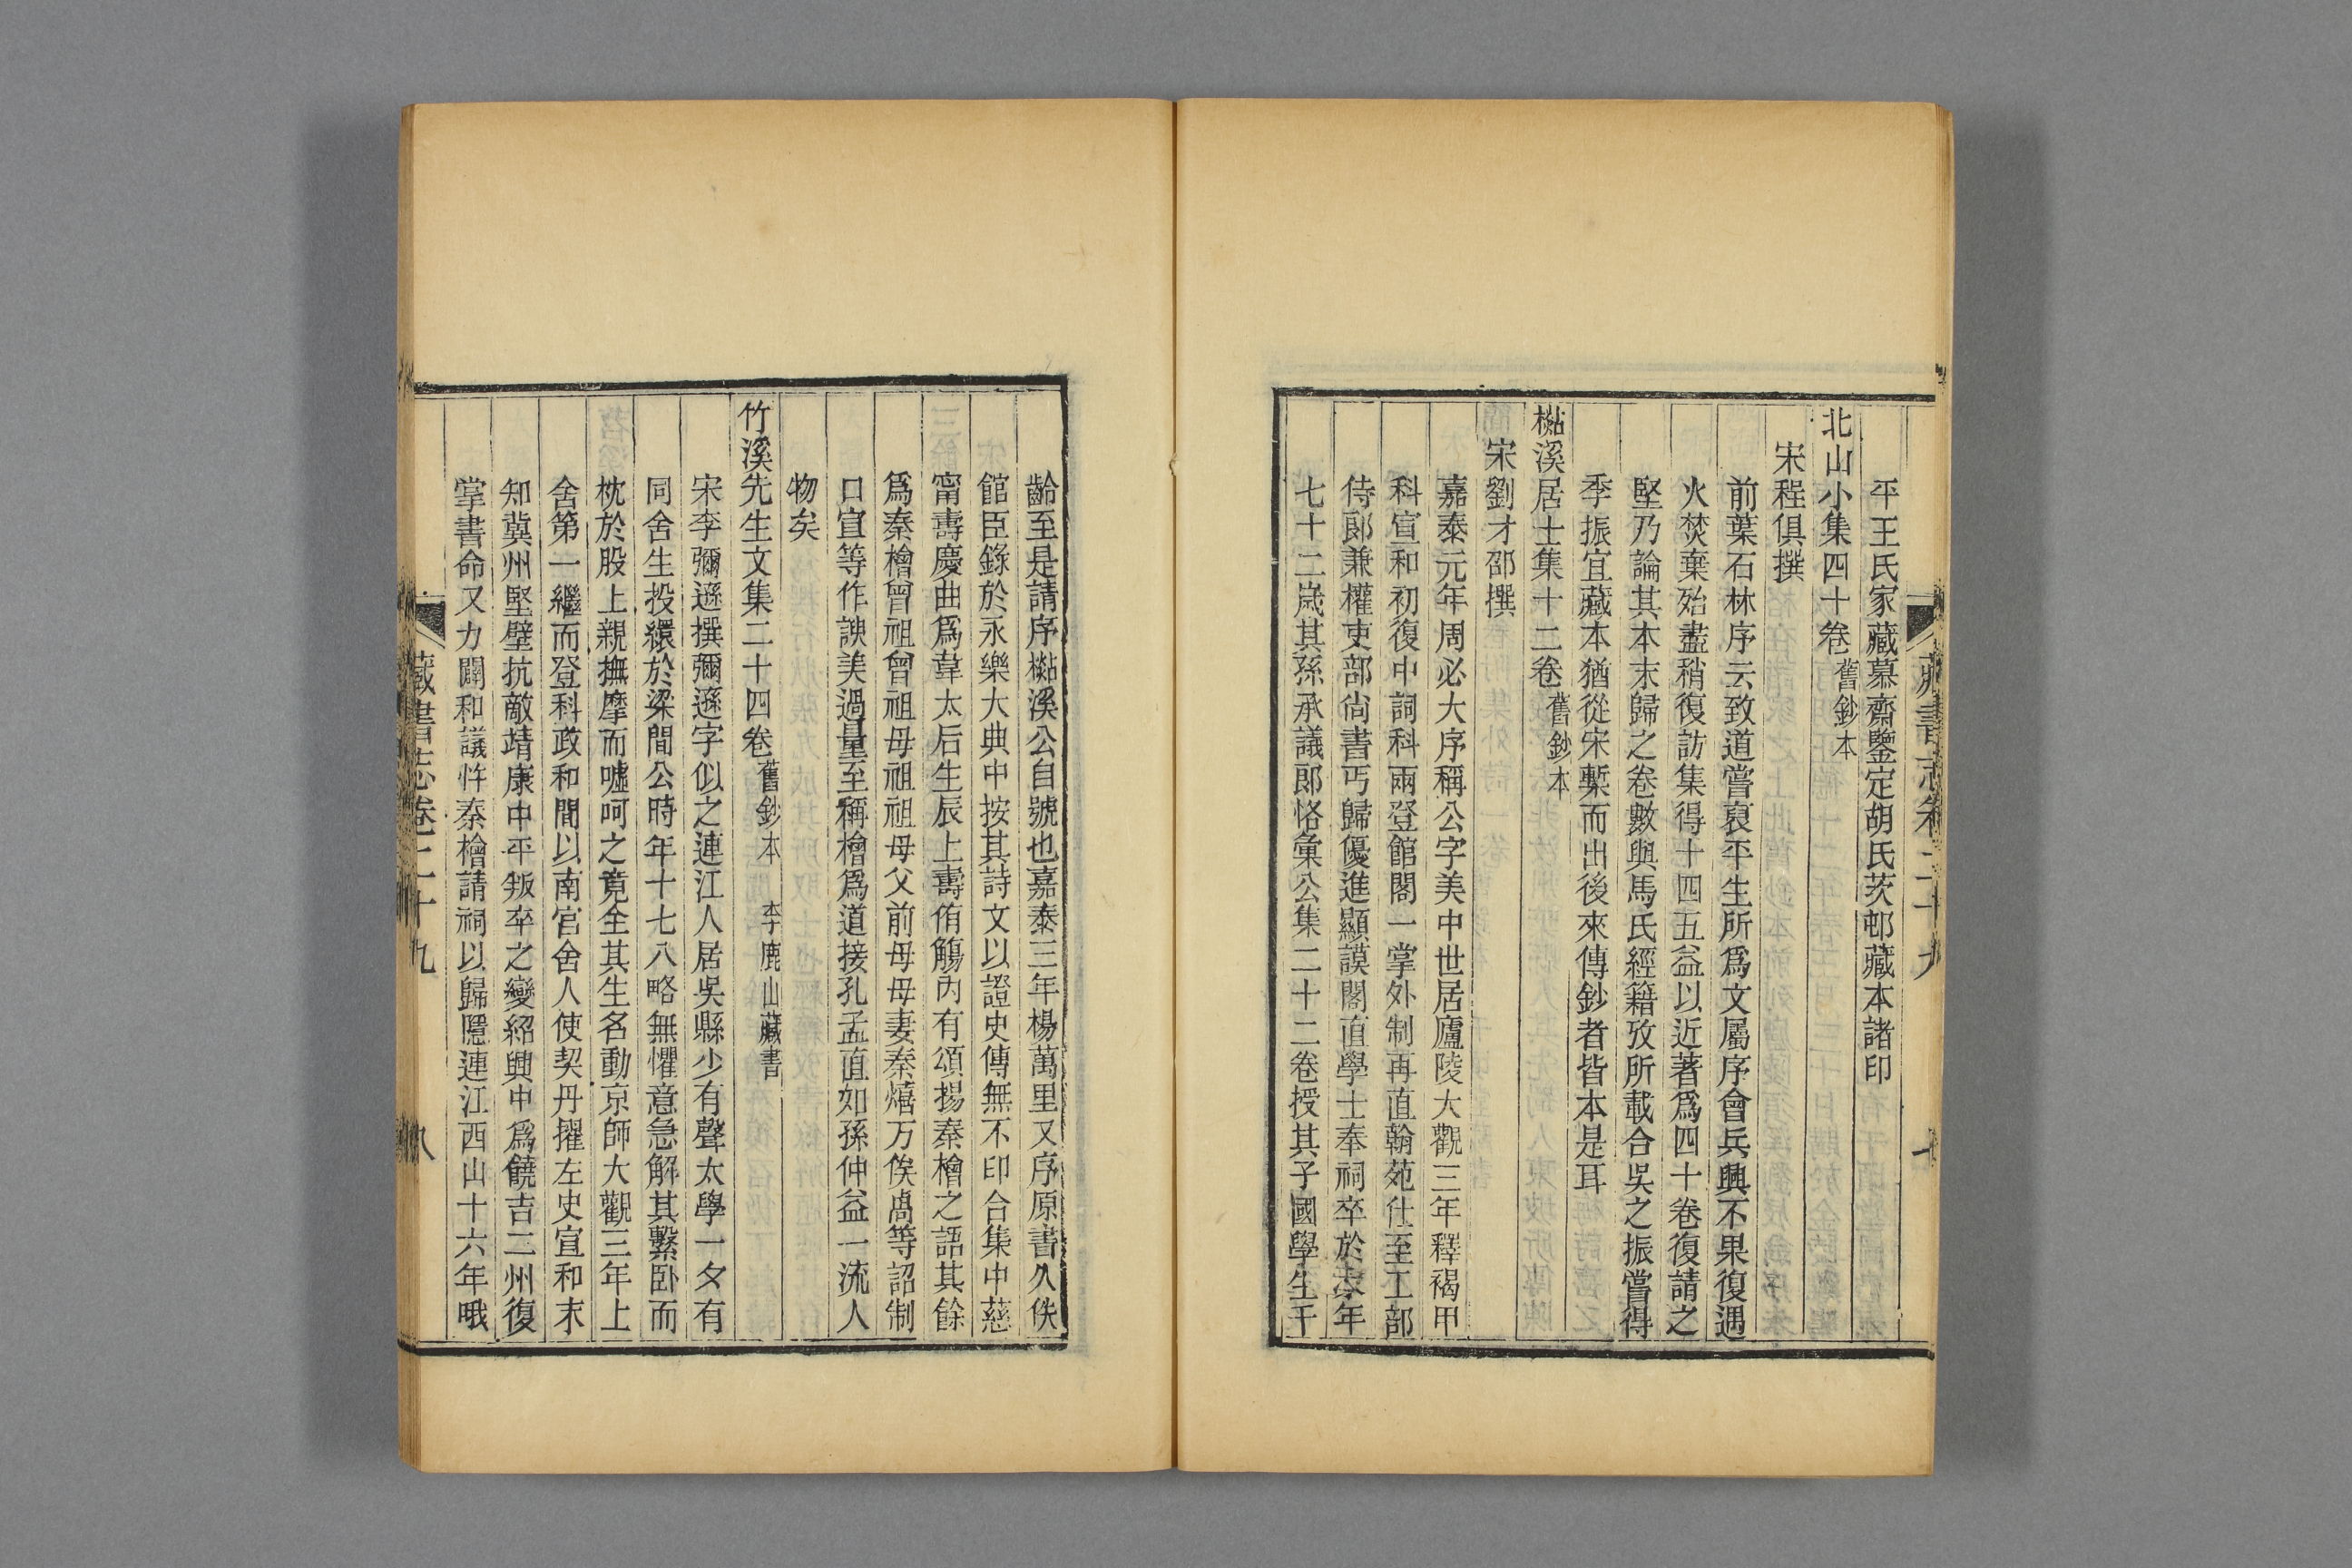 平王氏家藏慕齋鑒定胡氏茨邨藏本諸印
北山小集四十卷舊鈔本
宋程俱撰
前葉石林序云致道嘗裒平生所爲文屬序會兵興不果復遇
火焚棄殆盡稍復訪集得十四五益以近著爲四十卷復請之
堅乃論其本末歸之卷數與馬氏經籍攷所載合吳之振嘗得
季振宜藏本猶從宋槧而出後來傳鈔者皆本是耳
檆溪居士集十二卷舊鈔本
宋劉才邵撰
嘉泰元年周必大序稱公字美中世居廬陵大觀三年釋褐甲
科宣和初復中詞科兩登館閣一掌外制再直翰苑仕至工部
侍郎兼權吏部尚書丐歸優進顯謨閣直學士奉祠卒於家年
七十二歲其孫承議郎恪彙公集二十二卷授其子國學生千
藏書志卷二十九 七
齡至是請序檆溪公自號也嘉泰三年楊萬里又序原書久佚
館臣錄於永樂大典中按其詩文以證史傳無不印合集中慈
甯壽慶曲爲韋太后生辰上壽侑觴內有頌揚秦檜之語其餘
爲秦檜曾祖曾祖母祖祖母父前母母妻秦熺万俟卨等詔制
口宣等作諛美過量至稱檜爲道接孔孟直如孫仲益一流人
物矣
竹溪先生文集二十四卷舊鈔本 李鹿山藏書
宋李彌遜撰彌遜字似之連江人居吳縣少有聲太學一夕有
同舍生投繯於梁間公時年十七八略無懼意急解其繫卧而
枕於股上親撫摩而噓呵之竟全其生名動京師大觀三年上
舍第一繼而登科政和間以南宮舍人使契丹擢左史宣和末
知冀州堅壁抗敵靖康中平叛卒之變紹興中爲饒吉二州復
掌書命又力闢和議忤秦檜請祠以歸隱連江西山十六年哦
藏書志卷二十九 八